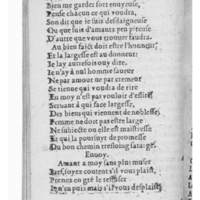 Bien me garder sort ennuyeuse,
Pense chacun ce qui voudra,
Son dit que je suis desdaigneuse
Ou que suis d'amants peu piteuse
D'autre que vous trouuer faudra.
Au bien faict doit estre l'honneur:
Et la largesse est au donneur:
Je lay autresfois ouy dire.
Je n'ay à nul homme faueur
Ne par amour ne par
Se tienne qui voudra de rire
En moy n'est pas vouloir d'estre
Seruant à qui face largesse,
Des biens qui viennent de noblesse,
Femme ne doit pas estre large
Ne subiecte ou elle est maistresse
Et qui la poursuyt de promesse
Du bon chemin tresloing
Enuoy.
Amant a moy sans plus muser
soyez content s'il vous plaist,
en gré le
Je n'en puis mais s'il vous desplaist,